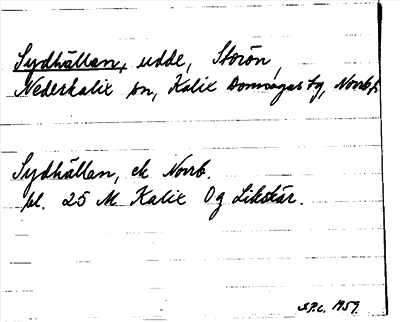 Sydhällan, udde, Storön,
Nederkalix sn, Kalix Domsagas tg, Norrb.
Sydhällan, ek Norrb.
bl. 25 M Kalix Og Likskär.
S.P.C. 1959.